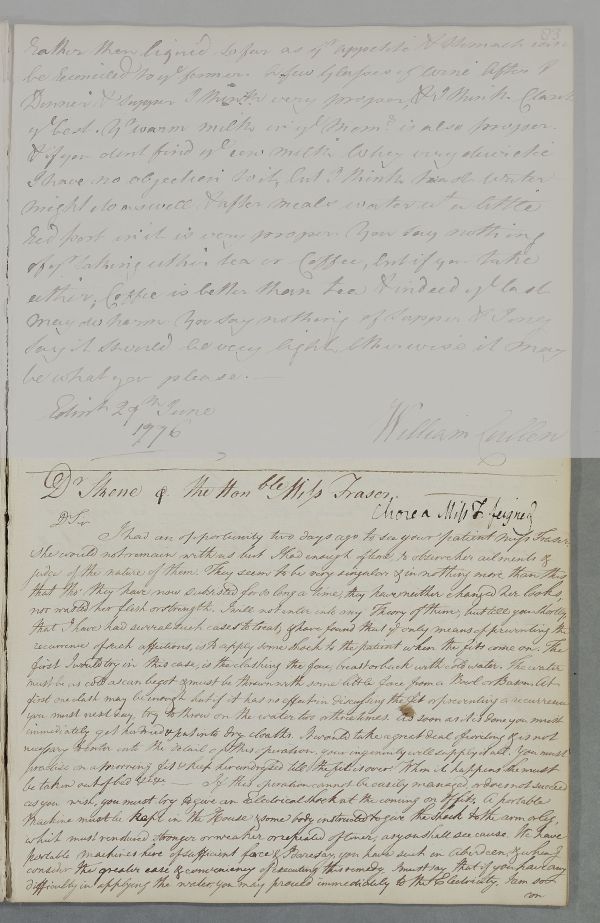 83
Rather than liquid. So far as yr. appetite & Stomach can
be reconciled to ye. former. A few Glasses of wine after
Dinner & Supper I think very proper, & I think Claret
ye best. Ye warm milk in ye Morng. is also proper
& if you dont find ye cow milk Whey very diuretic
I have no objection to it, but I think water
might do as well & after meals water wt. a little
Red port in it is very proper. You say nothing
of yr. taking either tea or Coffee, but if you take
either, Coffee is better than tea & indeed ye last
may do harm. You say nothing of Supper & I only
Say it should be very light, otherwise it may
be what you please.
Edinr. 29th June
1776 William Cullen
Dr. Skene &. the Honble Miss Fraser,
Chorea Miss F feigned
D.Sr
I had an opportunity two days ago to see your patient Miss Fraser
She would not remain with us but I had enough of time to observe her ailments &
judge of the nature of them. They seem to be very singular & in nothing more than this
that tho' they have now subsisted for so long a time, they have neither changed her looks,
nor wasted her flesh or strength. I will not enter into my Theory of them, but tell you Shortly
that I have had several such cases to treat, & have found that ye only means of preventing the
recurrence of such affections, is to apply some shock to the patient when the fits come on. The
first I would try in this case, is the dashing the face, breast or back with cold water. The water
must be as cold as can be got & must be thrown with some little force from a Bowl or Bason. At
first one dash may be enough but if it has no effect in discussing the fit or preventing a recurrence
you must next day, try to throw on the water two or three times. As soon as it is done you must
immediately get her dried & put into dry cloaths. It would take a great deal of writing & is not
necessary to enter into the detail of this operation, your ingenuity will supply it all. You must
practise on a morning fit & keep her undressed till the fit is over. When it happens she must
be taken out of bed &c. &c. If this operation cannot be easily managed or does not succeed
as you wish, you must try to give an Electrical shock at the coming on of fits. A portable
Machine must be kept in the House & some body instructed to give the shock to the arm or leg,
which must be rendered stronger or weaker or repeated oftener, as you shall see cause. We have
portable machines here of sufficient force & I dare say you have such in Aberdeen, & when I
consider the greater ease & conveniency of executing this remedy I must say that if you have any
difficulty in applying the water you may proceed immediately to the Electricity. I am so
con